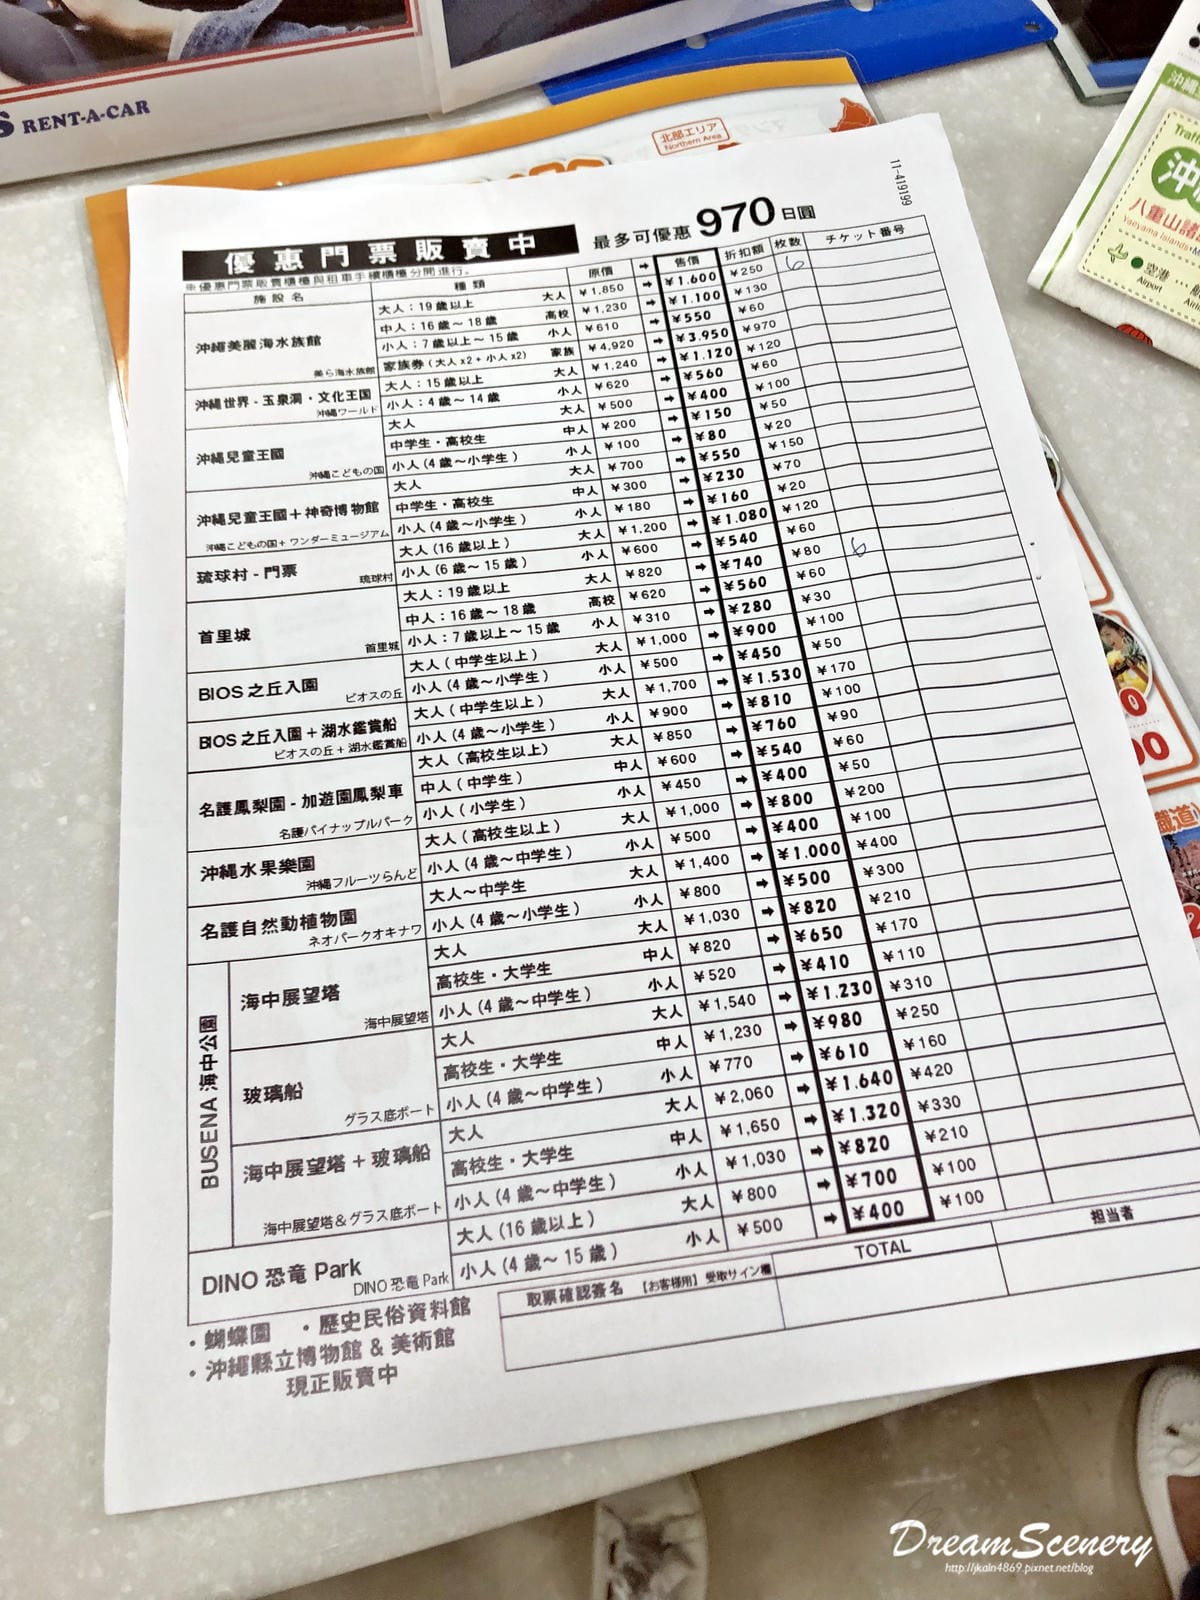 S RENT-A-CAR
北部エリア
Northern Area
沖縄
八重山諸
Yaeyama Islands
空港
Airport
11-419199
優惠門票販賣中 最多可優惠970日圓
※優惠門票販賣櫃檯與租車手續櫃檯分開進行。
施設名 種類 原價 → 售價 折扣額 枚数 チケット番号
沖縄美麗海水族館 美ら海水族館
大人：19歳以上 大人 ¥1,850 → ¥1.600 ¥250 6
中人：16歳～18歳 高校 ¥1,230 → ¥1.100 ¥130
小人：7歳以上～15歳 小人 ¥610 → ¥550 ¥60
家族券（大人x2＋小人x2） 家族 ¥4,920 → ¥3.950 ¥970
沖縄世界-玉泉洞・文化王国 沖縄ワールド
大人：15歳以上 大人 ¥1,240 → ¥1.120 ¥120
小人：4歳～14歳 小人 ¥620 → ¥560 ¥60
沖縄兒童王國 沖縄こどもの国
大人 大人 ¥500 → ¥400 ¥100
中学生・高校生 中人 ¥200 → ¥150 ¥50
小人(4歳～小学生) 小人 ¥100 → ¥80 ¥20
沖縄兒童王國＋神奇博物館 沖縄こどもの国＋ワンダーミュージアム
大人 大人 ¥700 → ¥550 ¥150
中学生・高校生 中人 ¥300 → ¥230 ¥70
小人(4歳～小学生) 小人 ¥180 → ¥160 ¥20
琉球村-門票 琉球村
大人(16歳以上) 大人 ¥1,200 → ¥1.080 ¥120
小人(6歳～15歳) 小人 ¥600 → ¥540 ¥60
首里城 首里城
大人：19歳以上 大人 ¥820 → ¥740 ¥80 6
中人：16歳～18歳 高校 ¥620 → ¥560 ¥60
小人：7歳以上～15歳 小人 ¥310 → ¥280 ¥30
BIOS之丘入園 ビオスの丘
大人(中学生以上) 大人 ¥1,000 → ¥900 ¥100
小人(4歳～小学生) 小人 ¥500 → ¥450 ¥50
BIOS之丘入園＋湖水鑑賞船 ビオスの丘＋湖水鑑賞船
大人(中学生以上) 大人 ¥1,700 → ¥1.530 ¥170
小人(4歳～小学生) 小人 ¥900 → ¥810 ¥100
名護鳳梨園-加遊園鳳梨車 名護パイナップルパーク
大人(高校生以上) 大人 ¥850 → ¥760 ¥90
中人(中学生) 中人 ¥600 → ¥540 ¥60
小人(小学生) 小人 ¥450 → ¥400 ¥50
沖縄水果樂園 沖縄フルーツらんど
大人(高校生以上) 大人 ¥1,000 → ¥800 ¥200
小人(4歳～中学生) 小人 ¥500 → ¥400 ¥100
名護自然動植物園 ネオパークオキナワ
大人～中学生 大人 ¥1,400 → ¥1.000 ¥400
小人(4歳～小学生) 小人 ¥800 → ¥500 ¥300
BUSENA 海中公園
海中展望塔 海中展望塔
大人 大人 ¥1,030 → ¥820 ¥210
高校生・大学生 中人 ¥820 → ¥650 ¥170
小人(4歳～中学生) 小人 ¥520 → ¥410 ¥110
玻璃船 グラス底ボート
大人 大人 ¥1,540 → ¥1.230 ¥310
高校生・大学生 中人 ¥1,230 → ¥980 ¥250
小人(4歳～中学生) 小人 ¥770 → ¥610 ¥160
海中展望塔＋玻璃船 海中展望塔＆グラス底ボート
大人 大人 ¥2,060 → ¥1.640 ¥420
高校生・大学生 中人 ¥1,650 → ¥1.320 ¥330
小人(4歳～中学生) 小人 ¥1,030 → ¥820 ¥210
DINO 恐竜 Park DINO 恐竜 Park
大人(16歳以上) 大人 ¥800 → ¥700 ¥100
小人(4歳～15歳) 小人 ¥500 → ¥400 ¥100
・蝴蝶園 ・歷史民俗資料館
・沖縄縣立博物館 & 美術館
現正販賣中
取票確認簽名 【お客様用】受取サイン欄 TOTAL 担当者
DreamScenery
http://jkaln4869.pixnet.net/blog